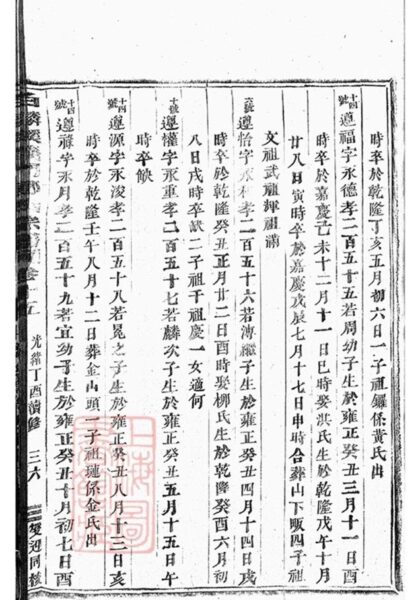 時卒於乾隆丁亥五月初六日一子祖鑼係黃氏出
十四號遵福字永德孝二百五十五若周幼子生於雍正癸丑三月十一日酉
時卒於嘉慶己未十二月十一日巳時娶洪氏生於乾隆戊午十月
廿八日寅時卒於嘉慶戊辰七月十七日申時合葬山下畈四子祖
文祖武祖輝祖
號遵怡字永和孝二百五十六若溥繼子生於雍正癸丑四月十四日戌
時卒於乾隆癸丑正月廿二日酉時娶柳氏生於乾隆癸酉六月初
八日戌時卒缺二子祖干祖慶一女適何
十號遵權字永重孝二百五十七若麟次子生於雍正癸丑五月十五日午
時卒缺
十四號遵源字永浚孝二百五十八若冕之子生於雍正癸丑八月十三日亥
時卒於乾隆壬午八月十二日葬金山頭一子祖蓮係金氏出
十四號遵祿字永月孝二百五十九若宜幼子生於雍正癸丑十月初七日酉
五 光緒丁酉續修 三六 雙週同核